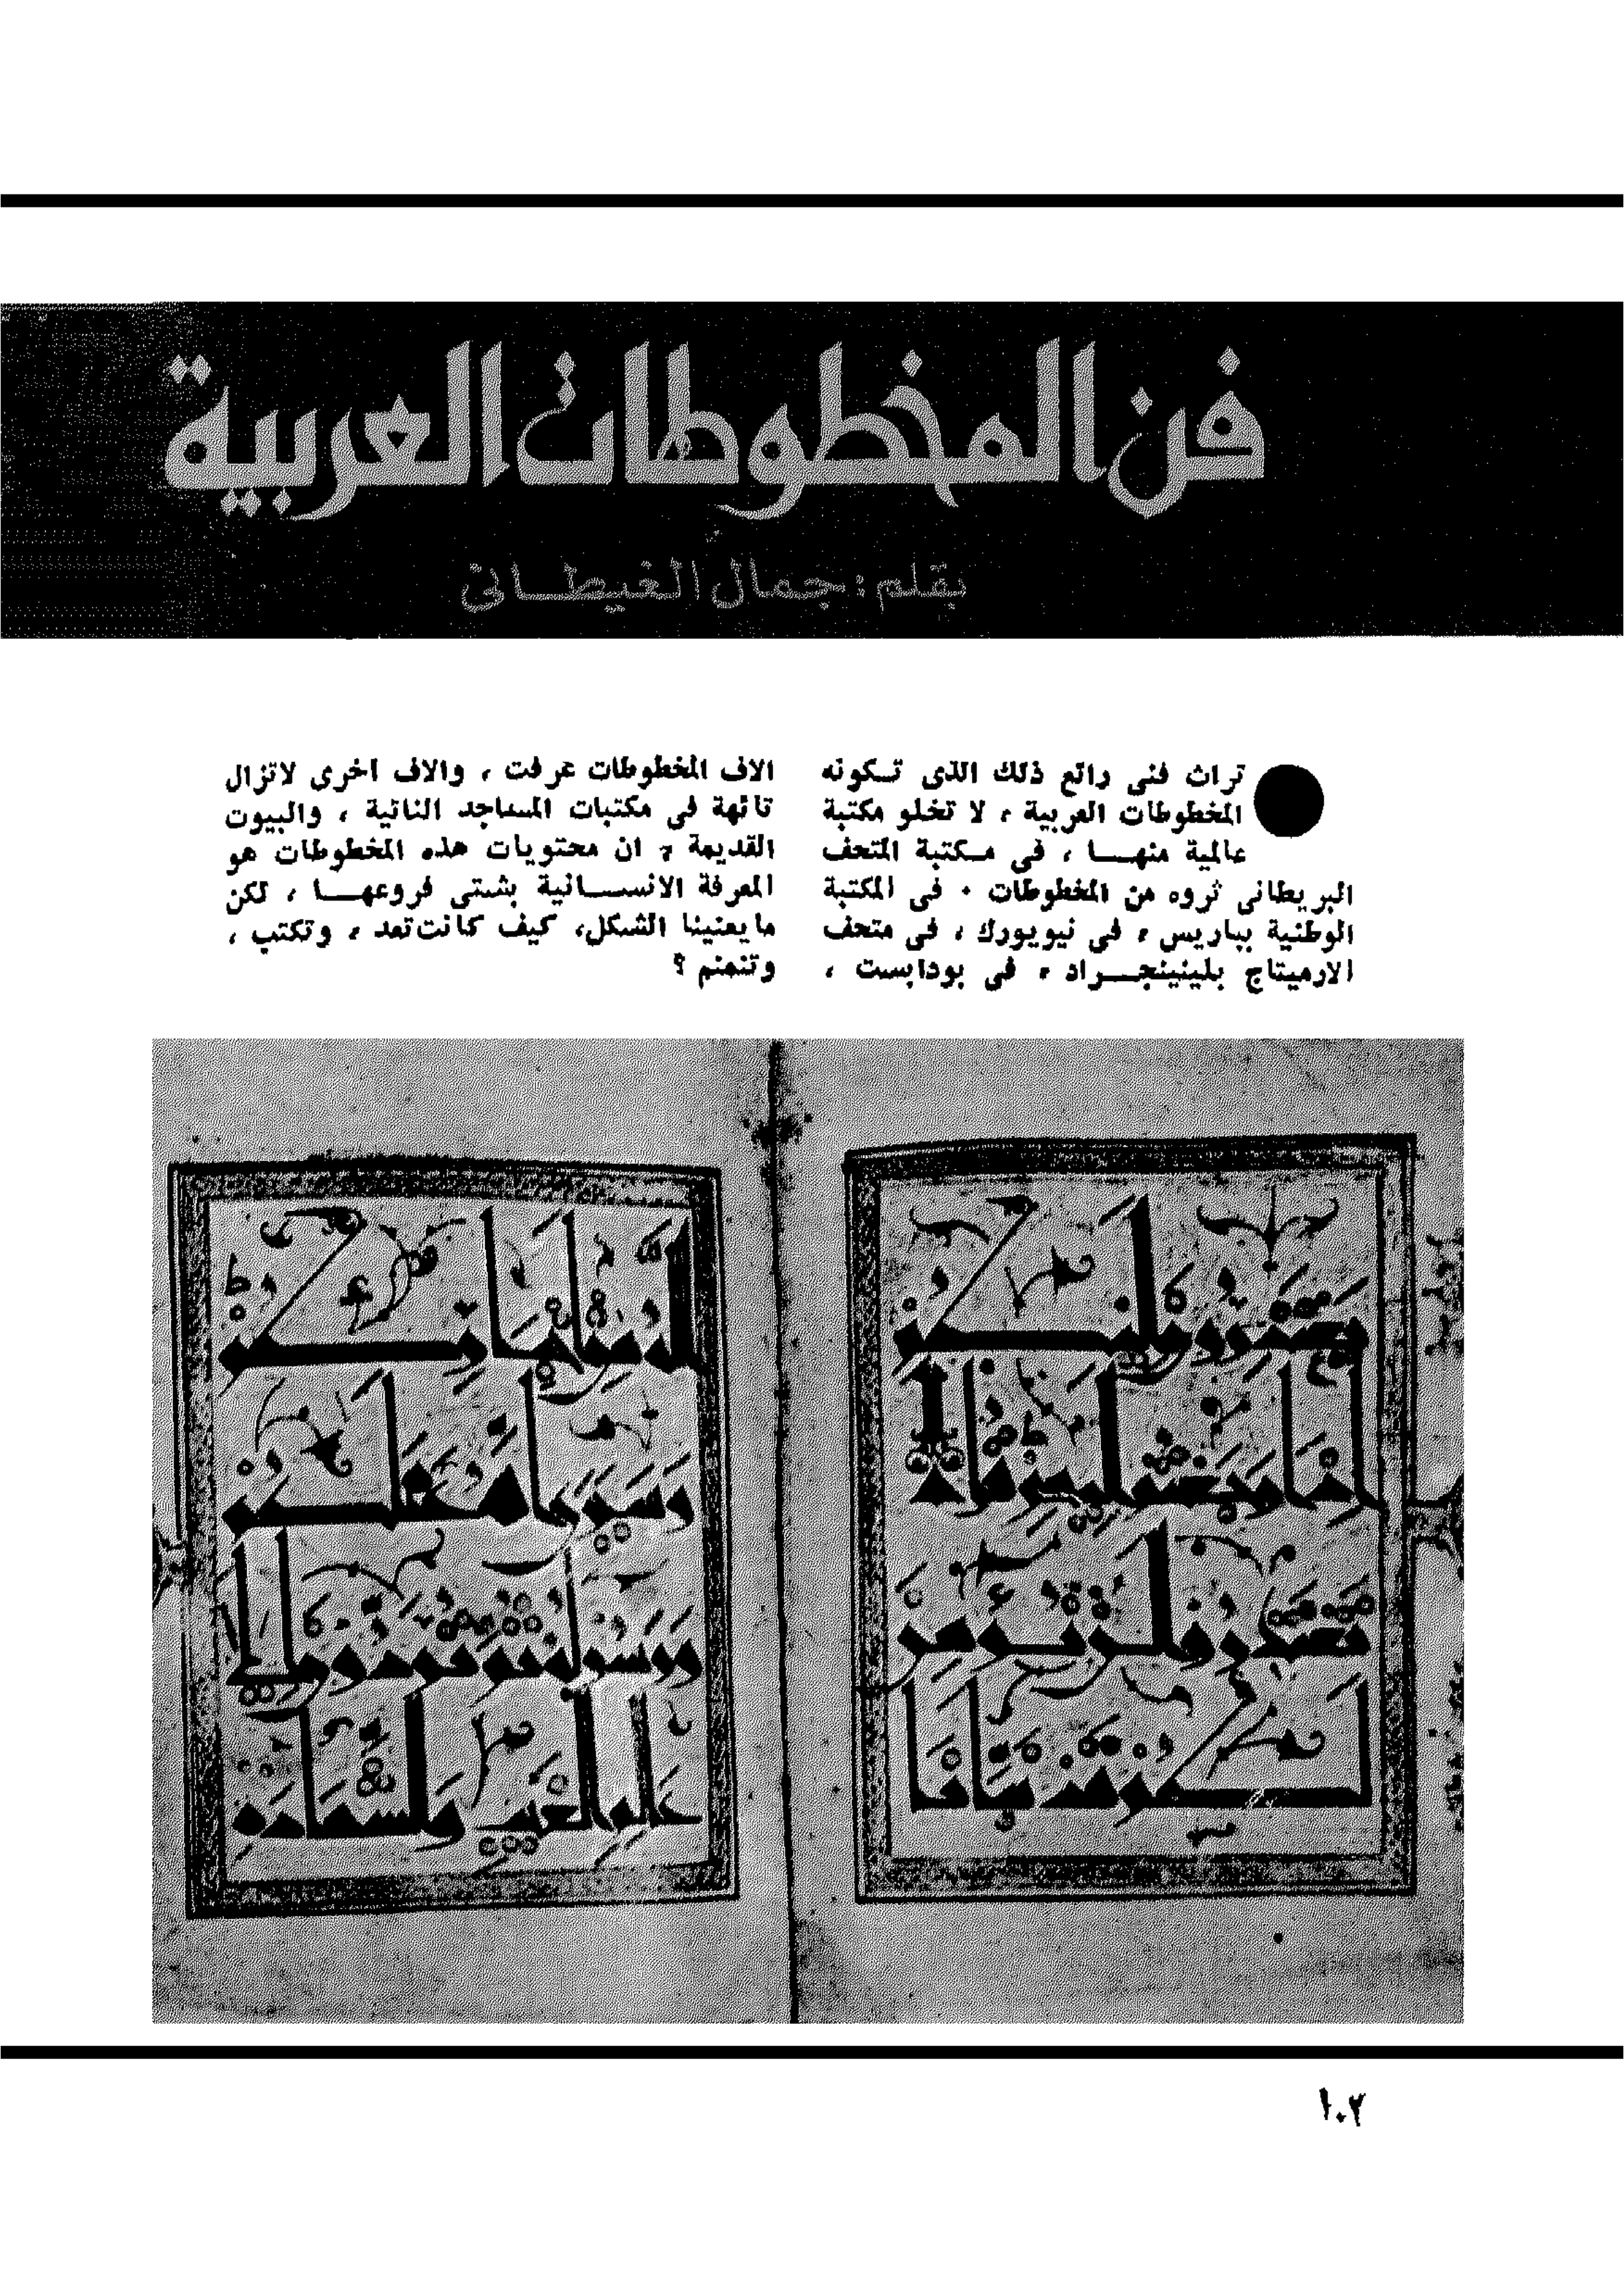 فن المخطوطات العربية
بقلم : جمال الغيطانى
تراث فنى رائع ذلك الذى تـكونه
المخطوطات العربية ، لا تخلو مكتبة
عالمية منهـــا ، فى مـكتبة المتحف
البريطانى ثروه من المخطوطات ٠ فى المكتبة
الوطنية بباريس ، فى نيويورك ، فى متحف
الارميتاج بلينينجـــراد ، فى بودابست ،
الاف المخطوطات عرفت ، والاف اخرى لاتزال
تائهة فى مكتبات المساجد النائية ، والبيوت
القديمة ، ان محتويات هذه المخطوطات هو
المعرفة الانســـانية بشتى فروعهـــا ، لكن
مايعنينا الشكل، كيف كانت تعد ، وتكتب ،
وتنمنم ؟
الله من اخباركم
وسيرى الله عملكم
ورسوله ثم تردون الى
عالم الغيب والشهادة
١٠٢